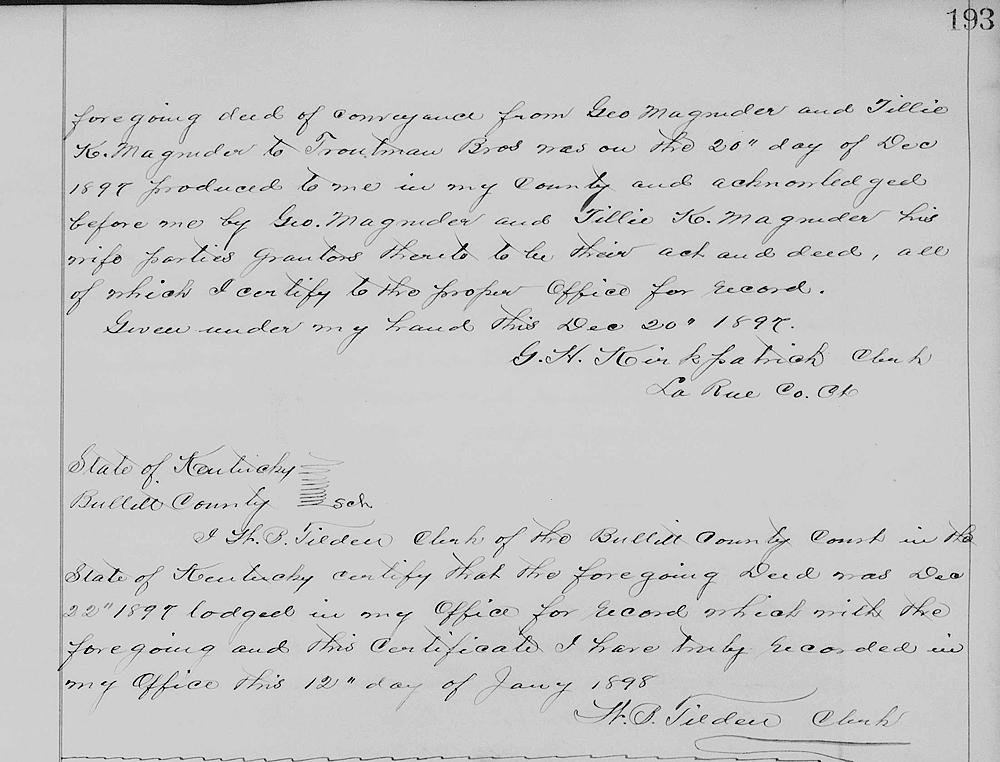 193
foregoing deed of conveyance from Geo Magruder and Tillie
K. Magruder to Troutman Bros was on the 20" day of Dec
1897 produced to me in my County and acknowledged
before me by Geo. Magruder and Tillie K. Magruder his
wife parties Grantors thereto to be their act and deed, all
of which I certify to the proper Office for record.
Given under my hand this Dec 20" 1897.
G. H. Kirkpatrick Clerk
La Rue Co. Ct
State of Kentucky
Bullitt County sch
I H. P. Tilden Clerk of the Bullitt County Court in the
State of Kentucky certify that the foregoing Deed was Dec
22" 1897 lodged in my Office for record which with the
foregoing and this Certificate I have truly recorded in
my Office this 12" day of Jany 1898
H. P. Tilden Clerk